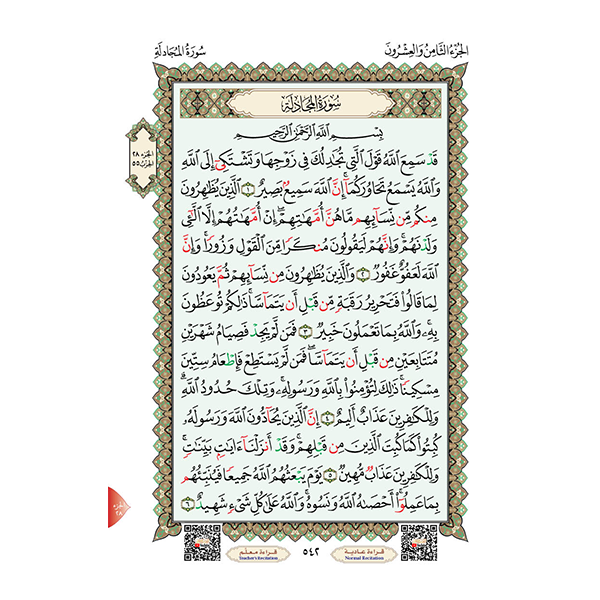 سُورَةُ المُجَادلَةِ
الجُزْءُ الثَّامِنُ وَالعِشْرُونَ
سُورَةُ المُجَادلَةِ
بِسْمِ اللَّهِ الرَّحْمَٰنِ الرَّحِيمِ
الجزء ٢٨
الحزب ٥٥
قَدْ سَمِعَ ٱللَّهُ قَوْلَ ٱلَّتِي تُجَٰدِلُكَ فِي زَوْجِهَا وَتَشْتَكِيٓ إِلَى ٱللَّهِ
وَٱللَّهُ يَسْمَعُ تَحَاوُرَكُمَآۚ إِنَّ ٱللَّهَ سَمِيعُۢ بَصِيرٌ ١ ٱلَّذِينَ يُظَٰهِرُونَ
مِنكُم مِّن نِّسَآئِهِم مَّا هُنَّ أُمَّهَٰتِهِمْۖ إِنْ أُمَّهَٰتُهُمْ إِلَّا ٱلَّٰٓـِٔي
وَلَدْنَهُمْۚ وَإِنَّهُمْ لَيَقُولُونَ مُنكَرًا مِّنَ ٱلْقَوْلِ وَزُورًاۚ وَإِنَّ
ٱللَّهَ لَعَفُوٌّ غَفُورٌ ٢ وَٱلَّذِينَ يُظَٰهِرُونَ مِن نِّسَآئِهِمْ ثُمَّ يَعُودُونَ
لِمَا قَالُوا۟ فَتَحْرِيرُ رَقَبَةٍ مِّن قَبْلِ أَن يَتَمَآسَّاۚ ذَٰلِكُمْ تُوعَظُونَ
بِهِۦۚ وَٱللَّهُ بِمَا تَعْمَلُونَ خَبِيرٌ ٣ فَمَن لَّمْ يَجِدْ فَصِيَامُ شَهْرَيْنِ
مُتَتَابِعَيْنِ مِن قَبْلِ أَن يَتَمَآسَّاۖ فَمَن لَّمْ يَسْتَطِعْ فَإِطْعَامُ سِتِّينَ
مِسْكِينًاۚ ذَٰلِكَ لِتُؤْمِنُوا۟ بِٱللَّهِ وَرَسُولِهِۦۚ وَتِلْكَ حُدُودُ ٱللَّهِۗ
وَلِلْكَٰفِرِينَ عَذَابٌ أَلِيمٌ ٤ إِنَّ ٱلَّذِينَ يُحَآدُّونَ ٱللَّهَ وَرَسُولَهُۥ
كُبِتُوا۟ كَمَا كُبِتَ ٱلَّذِينَ مِن قَبْلِهِمْۚ وَقَدْ أَنزَلْنَآ ءَايَٰتٍۭ بَيِّنَٰتٍۚ
وَلِلْكَٰفِرِينَ عَذَابٌ مُّهِينٌ ٥ يَوْمَ يَبْعَثُهُمُ ٱللَّهُ جَمِيعًا فَيُنَبِّئُهُم
بِمَا عَمِلُوٓا۟ۚ أَحْصَىٰهُ ٱللَّهُ وَنَسُوهُۚ وَٱللَّهُ عَلَىٰ كُلِّ شَيْءٍ شَهِيدٌ ٦
الجزء
٢٨
قراءة معلم
Teacher's Recitation
٥٤٢
قراءة عادية
Normal Recitation